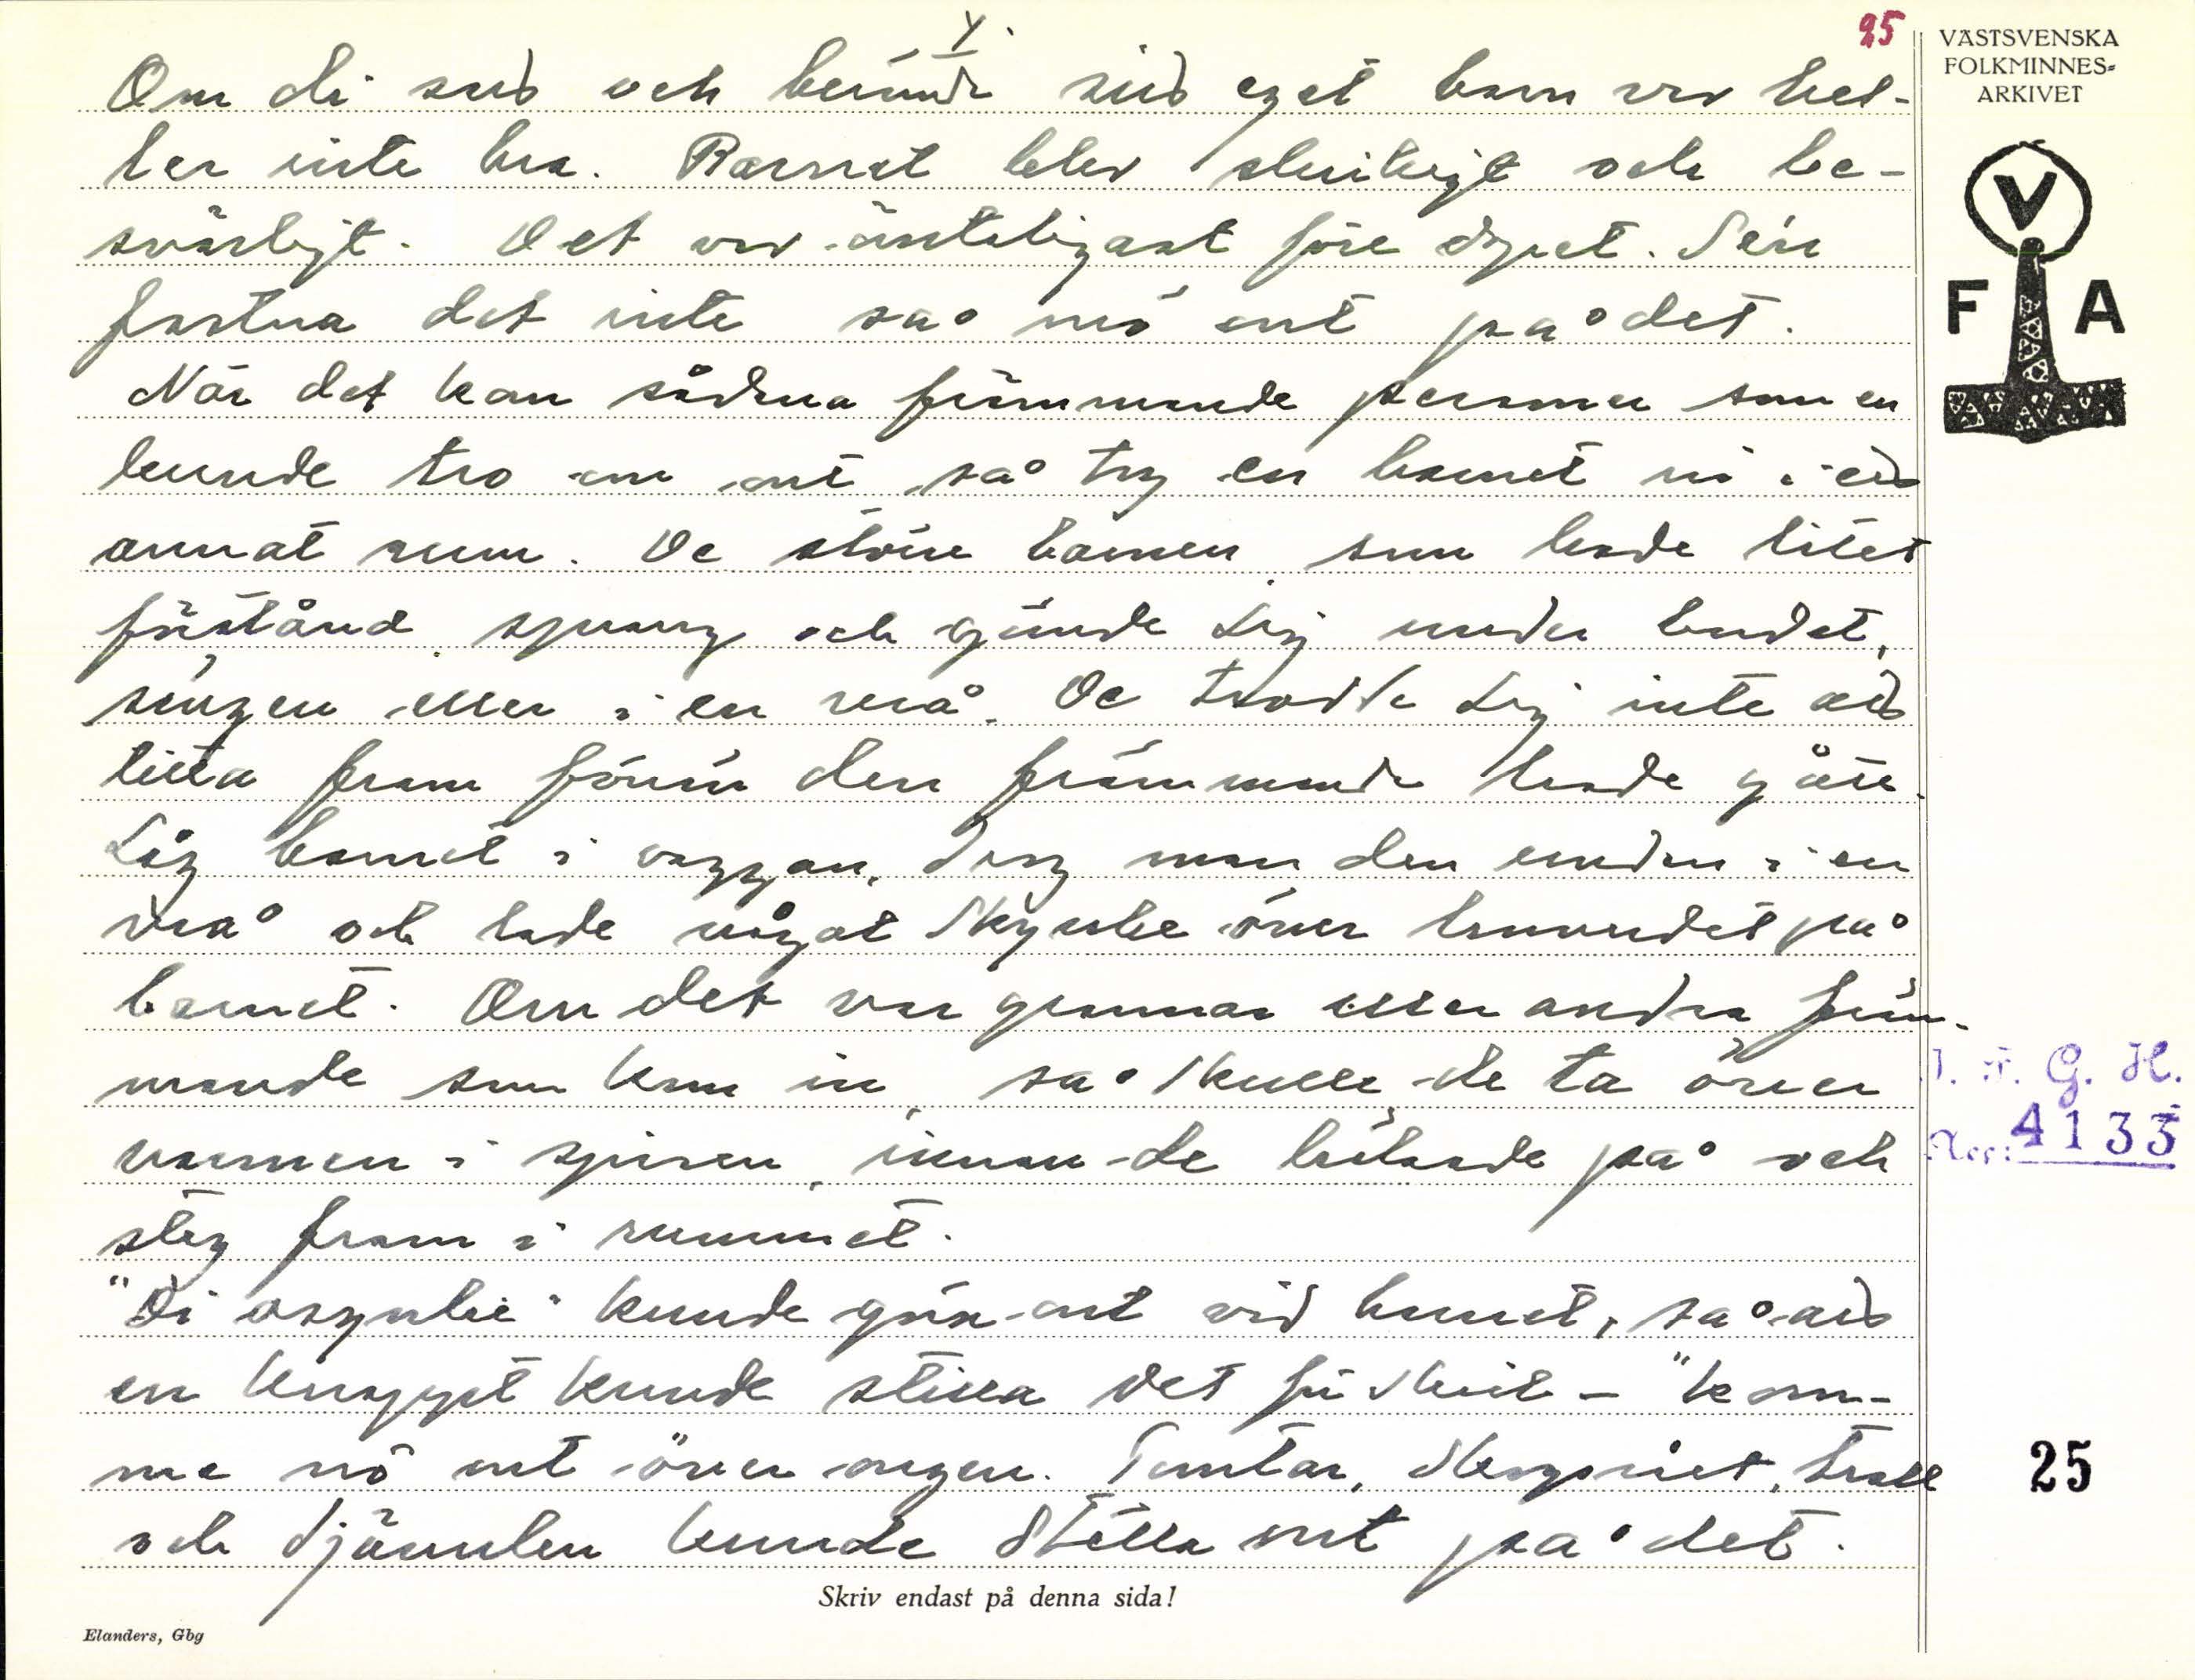 Y.
25
VÄSTSVENSKA
FOLKMINNES-
ARKIVET
Om di såd och berömde sitt eget barn var hel-
ler inte bra. Barnet blev skrikigt och be-
svärligt. Det var ömtåligast före dopet. Sen
fastna det inte så mö ont på det.
När det kom sådana främmande personer som en
kunde tro om ont så tog en barnet in i ett
annat rum. De större barnen, som hade litet
förstånd, sprang och gömde sig under bordet,
sängen eller i en vrå. De trodde sig inte att
titta fram förrän den främmande hade gått.
Låg barnet i vaggan, drog man den undan i en
vrå och lade något skynke över huvudet på
barnet. Om det var grannar eller andra främ-
mande som kom in, så skulle de ta över
varmen i spisen, innan de hälsade på och
steg fram i rummet.
"Di osynlie" kunde göra ont vid barnet, så att
en knappt kunde stilla det för skrik - "kom-
me nö ont över ongen. Tomtar, skogsrået, troll
och djävulen kunde ställa ont på det.
V
F A
I. F. G. H.
Acc: 4133
25
Skriv endast på denna sida!
Elanders, Gbg